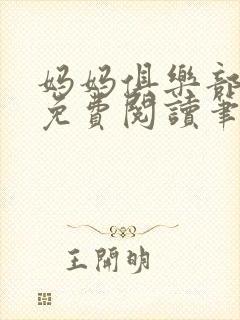 妈妈俱樂部
免費閱讀筆
王開明